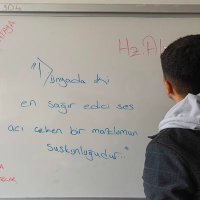 304
Hz. Al
"Dünyada ki
en sağır edici ses
acı çeken bir mazlumun
suskunluğudur..."